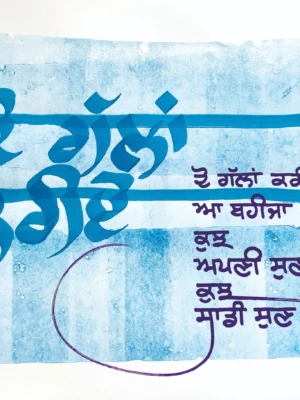 ਗੱਲਾਂ
ਦੋ ਗੱਲਾਂ ਕਰੀ
ਆ ਬਹੀਜਾ
ਕੁਝ
ਅਪਣੀ ਸੁਣ
ਕੁਝ
ਸਾਡੀ ਸੁਣ